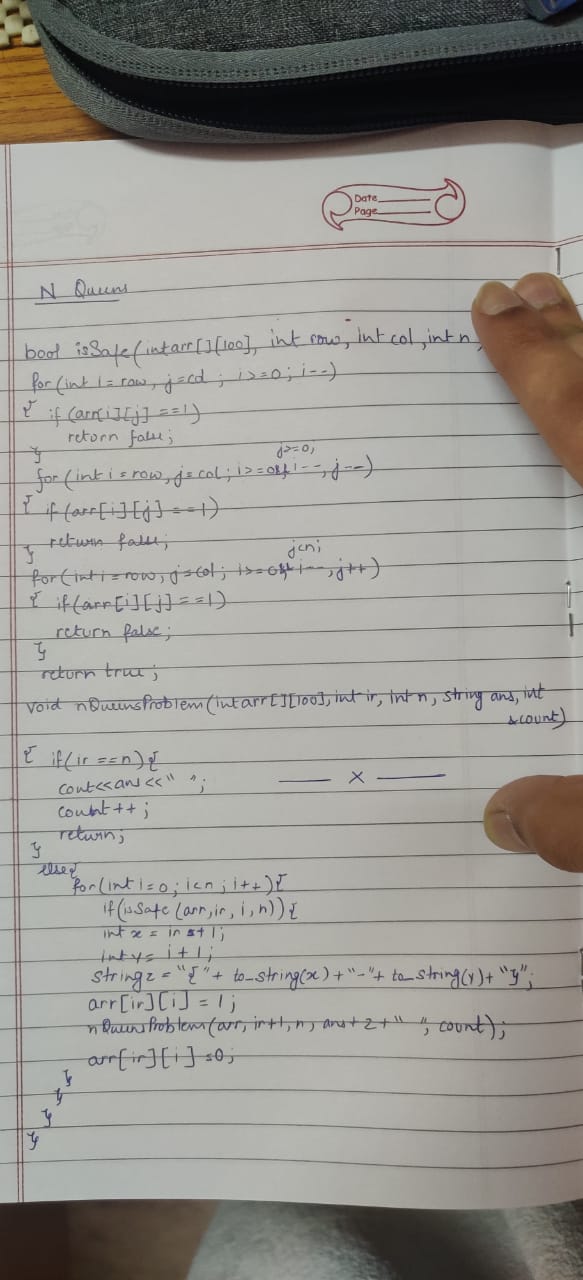 Date
Page
N Queens
bool isSafe(int arr[][100], int row, int col, int n,
for(int i=row, j=col ; i>=0; i--)
{ if (arr[i][j] ==1)
return false;
}
for(int i=row, j=col; i>=0; j>=0; i--, j--)
{ if (arr[i][j]==1)
return false;
}
for(int i=row, j=col; i>=0; j<n; i--, j++)
{ if(arr[i][j]==1)
return false;
}
return true;
void nQueensProblem(int arr[][100], int ir, int n, string ans, int
&count)
{ if(ir ==n){
cout<<ans<<" ";
count++;
return;
}
else{
for(int i=0; i<n; i++){
if(isSafe(arr, ir, i, n)){
int x = ir+1;
int y= i+1;
string z = "{"+ to_string(x)+"-"+to_string(y)+"}";
arr[ir][i] = 1;
nQueensProblem(arr, ir+1, n, ans+z+" ", count);
arr[ir][i] =0;
}
}
}
}